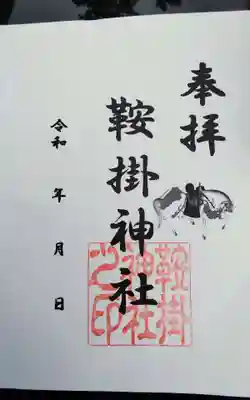 奉拝
鞍掛神社
鞍掛
神社
之印
令和 年 月 日